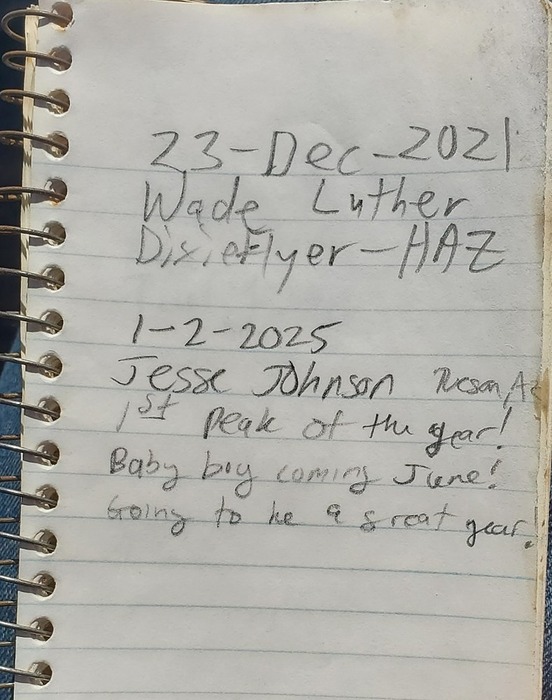 23-Dec-2021
Wade Luther
Dixieflyer-HAZ
1-2-2025
Jesse Johnson Tucson, Az
1st Peak of the year!
Baby boy coming June!
Going to be a great year!